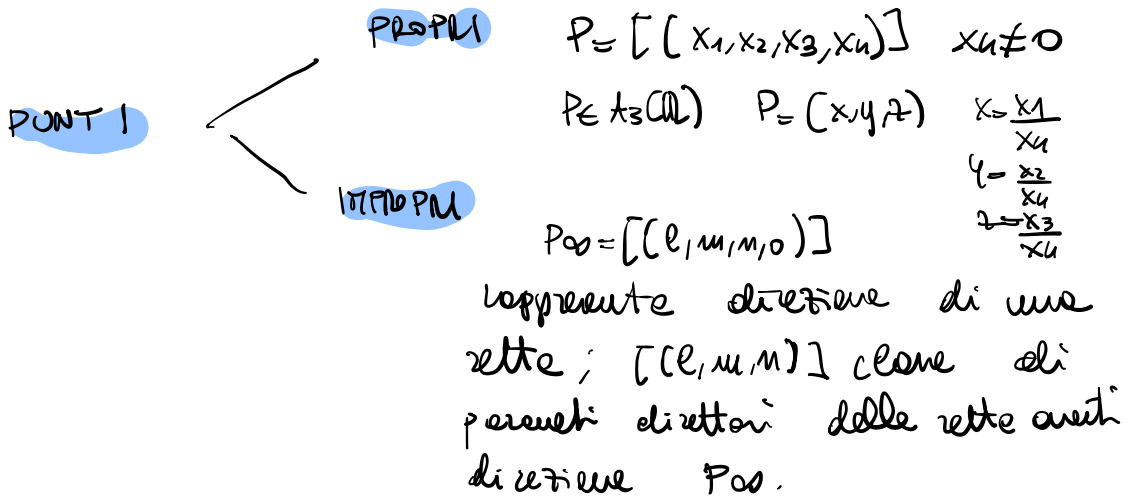 PROPRI P = [(x1, x2, x3, x4)] x4 ≠ 0
PUNTI
P ∈ A3(R) P = (x, y, z) x = x1/x4
y = x2/x4
IMPROPRI
z = x3/x4
P∞ = [(l, m, n, 0)]
rappresenta direzione di una
retta; [(l, m, n)] classe di
parametri direttori delle rette aventi
direzione P∞.